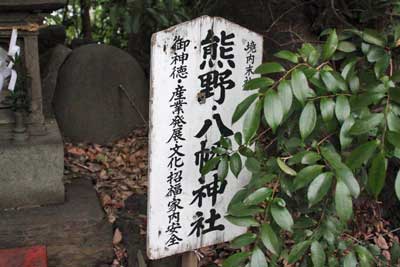 境内末社
熊野・八幡神社
御神徳・産業発展文化招福家内安全